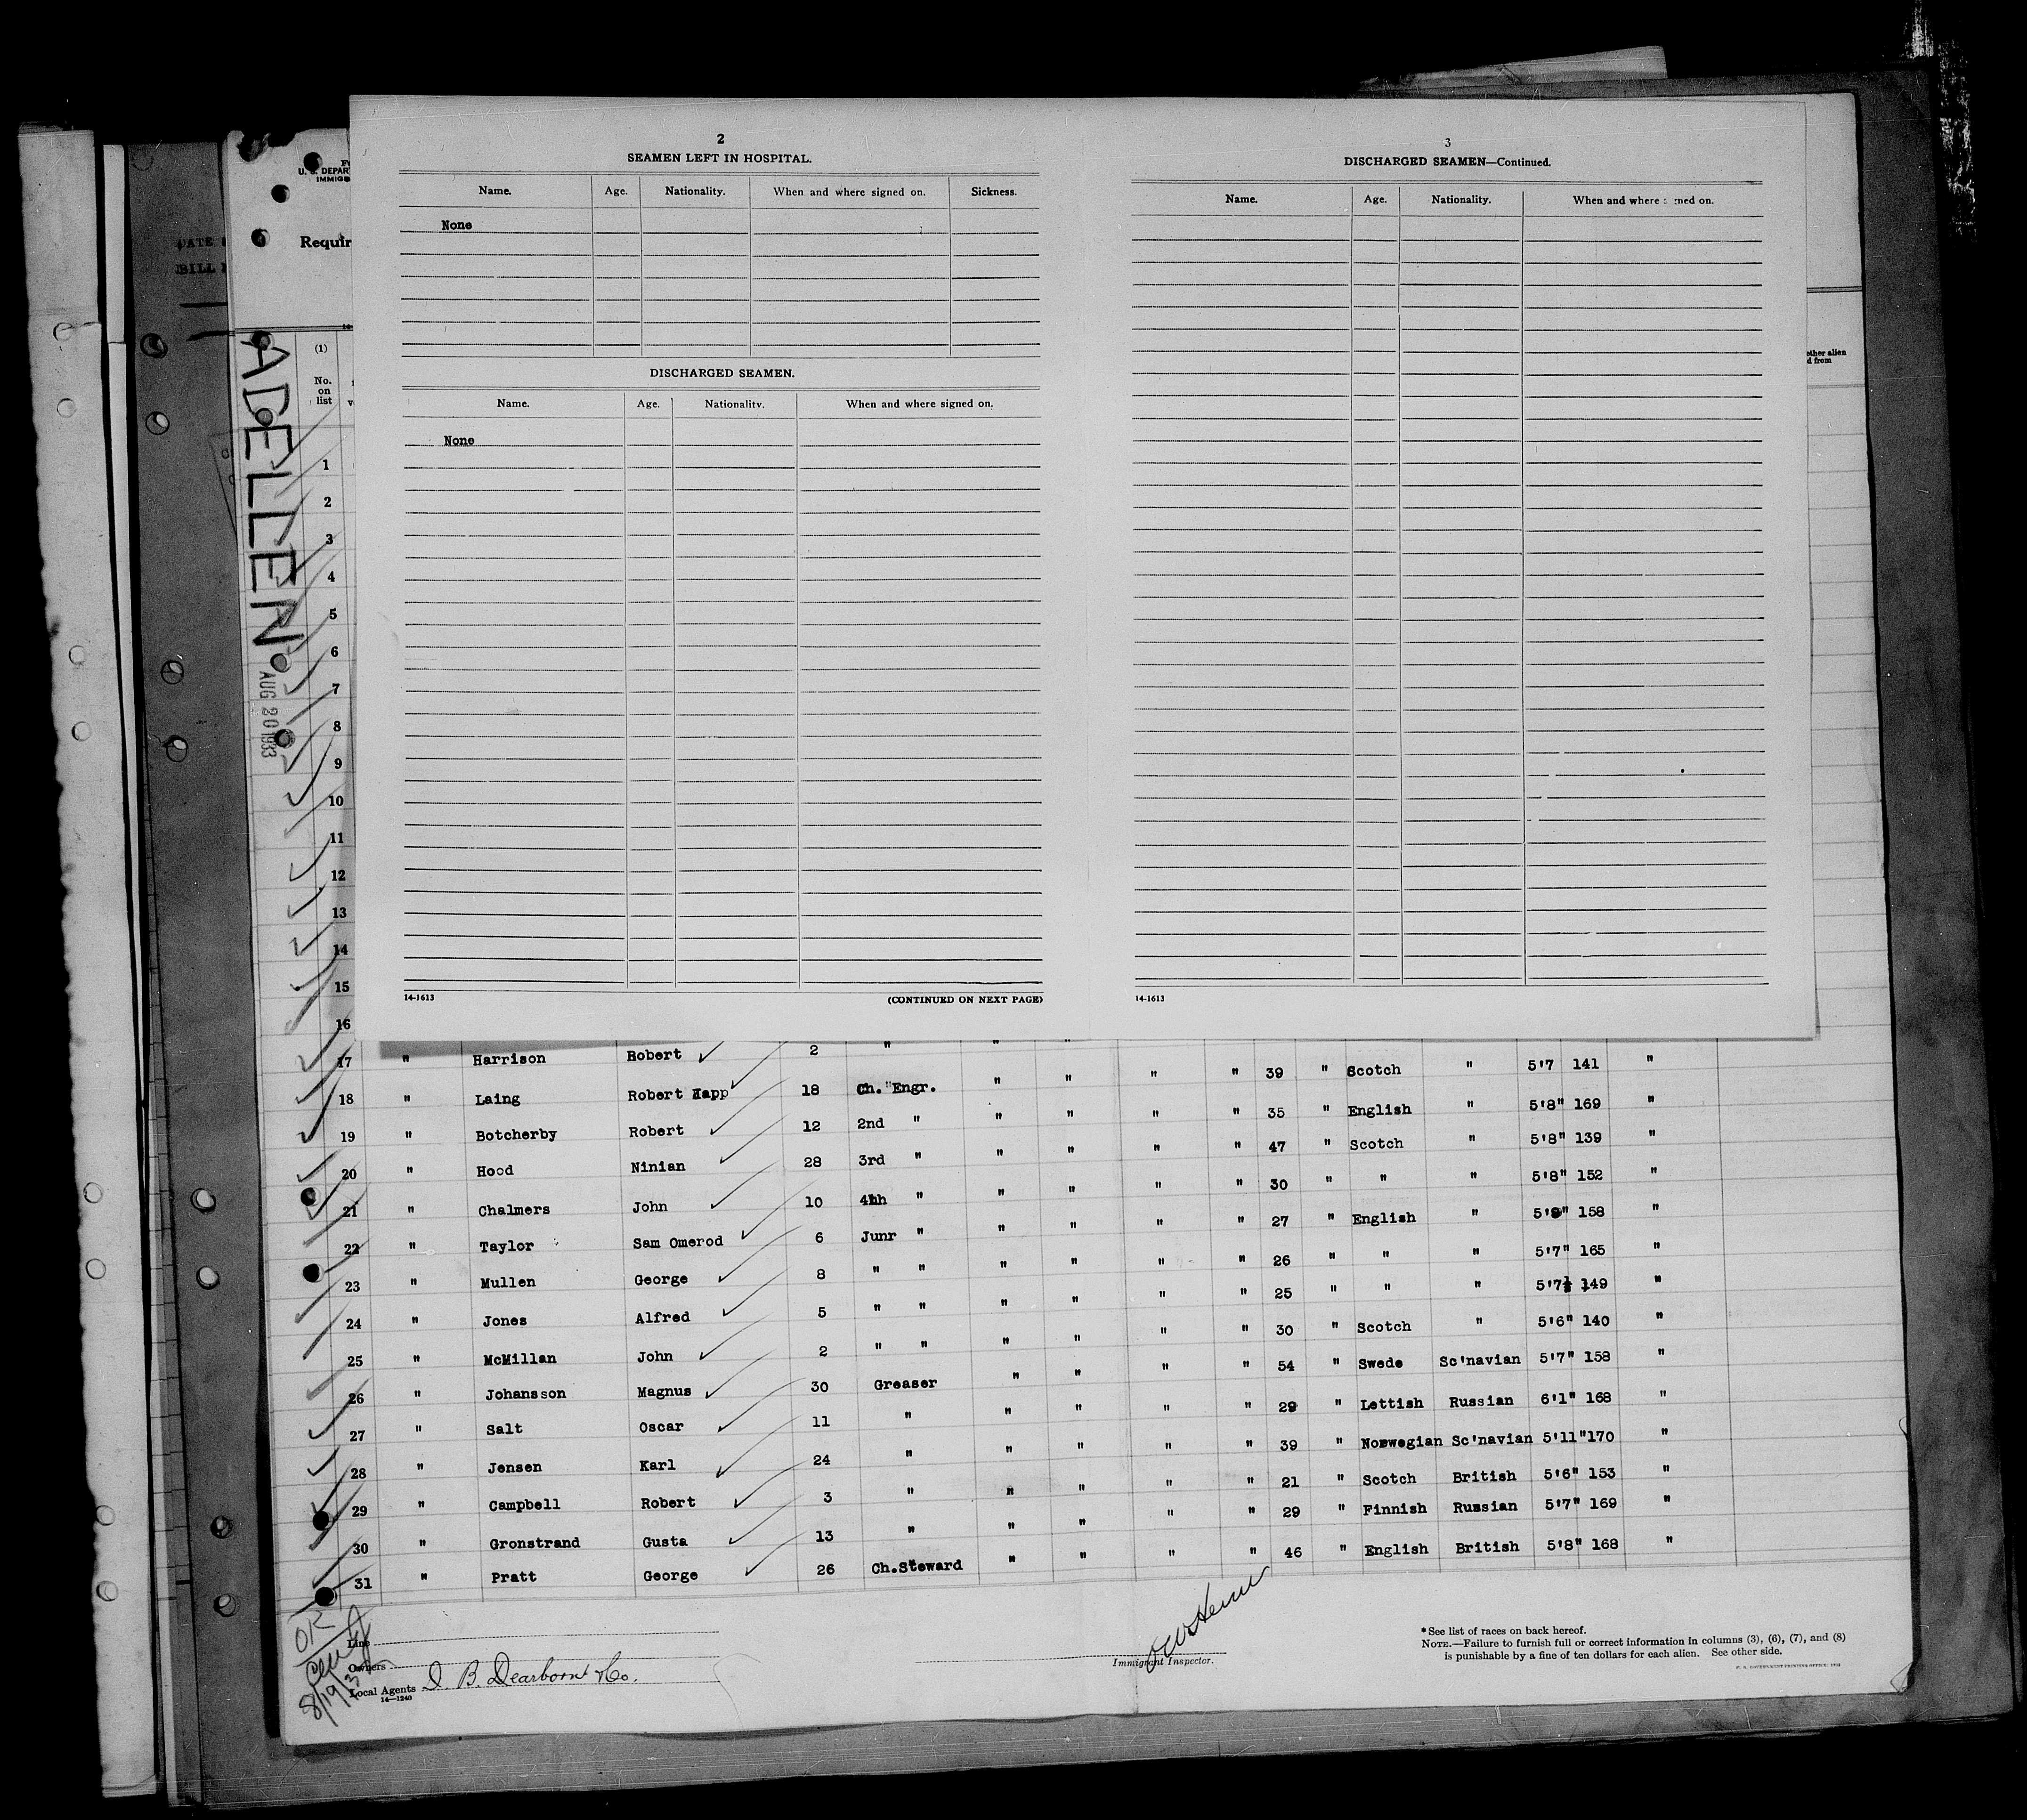 2
SEAMEN LEFT IN HOSPITAL.
Name. Age. Nationality. When and where signed on. Sickness.
None
DISCHARGED SEAMEN.
Name. Age. Nationality. When and where signed on.
None
14-1613 (CONTINUED ON NEXT PAGE)
3
DISCHARGED SEAMEN—Continued.
Name. Age. Nationality. When and where
14-1613
U. S. DEPAR
IMMIG
Requir
DATE
BILL
ADELLEN
AUG 20 1933
(1)
No.
on
list
ether alien
d from
1
2
3
4
5
6
7
8
9
10
11
12
13
14
15
16
17 " Harrison Robert 2 " " "
18 " Laing Robert Kapp 18 Ch. " Engr. " " " " 39 " Scotch " 5'7 141 "
19 " Botcherby Robert 12 2nd " " " " " 35 " English " 5'8" 169 "
20 " Hood Ninian 28 3rd " " " " " 47 " Scotch " 5'8" 139 "
21 " Chalmers John 10 4hh " " " " " 30 " " " 5'8" 152 "
22 " Taylor Sam Omerod 6 Junr " " " " " 27 " English " 5'9" 158 "
23 " Mullen George 8 " " " " " " 26 " " " 5'7" 165 "
24 " Jones Alfred 5 " " " " " " 25 " " " 5'7½ 149 "
25 " McMillan John 2 " " " " " " 30 " Scotch " 5'6" 140 "
26 " Johansson Magnus 30 Greaser " " " " 54 " Swede Sc'navian 5'7" 158 "
27 " Salt Oscar 11 " " " " " 29 " Lettish Russian 6'1" 168 "
28 " Jensen Karl 24 " " " " " 39 " Norwegian Sc'navian 5'11" 170 "
29 " Campbell Robert 3 " " " " " 21 " Scotch British 5'6" 153 "
30 " Gronstrand Gusta 13 " " " " " 29 " Finnish Russian 5'7" 169 "
31 " Pratt George 26 Ch.Steward " " " " 46 " English British 5'8" 168 "
OK
8/19/3
Line
Owners
Local Agents D. B. Dearborn & Co.
14—1240
Immigrant Inspector.
*See list of races on back hereof.
NOTE.—Failure to furnish full or correct information in columns (3), (6), (7), and (8)
is punishable by a fine of ten dollars for each alien. See other side.